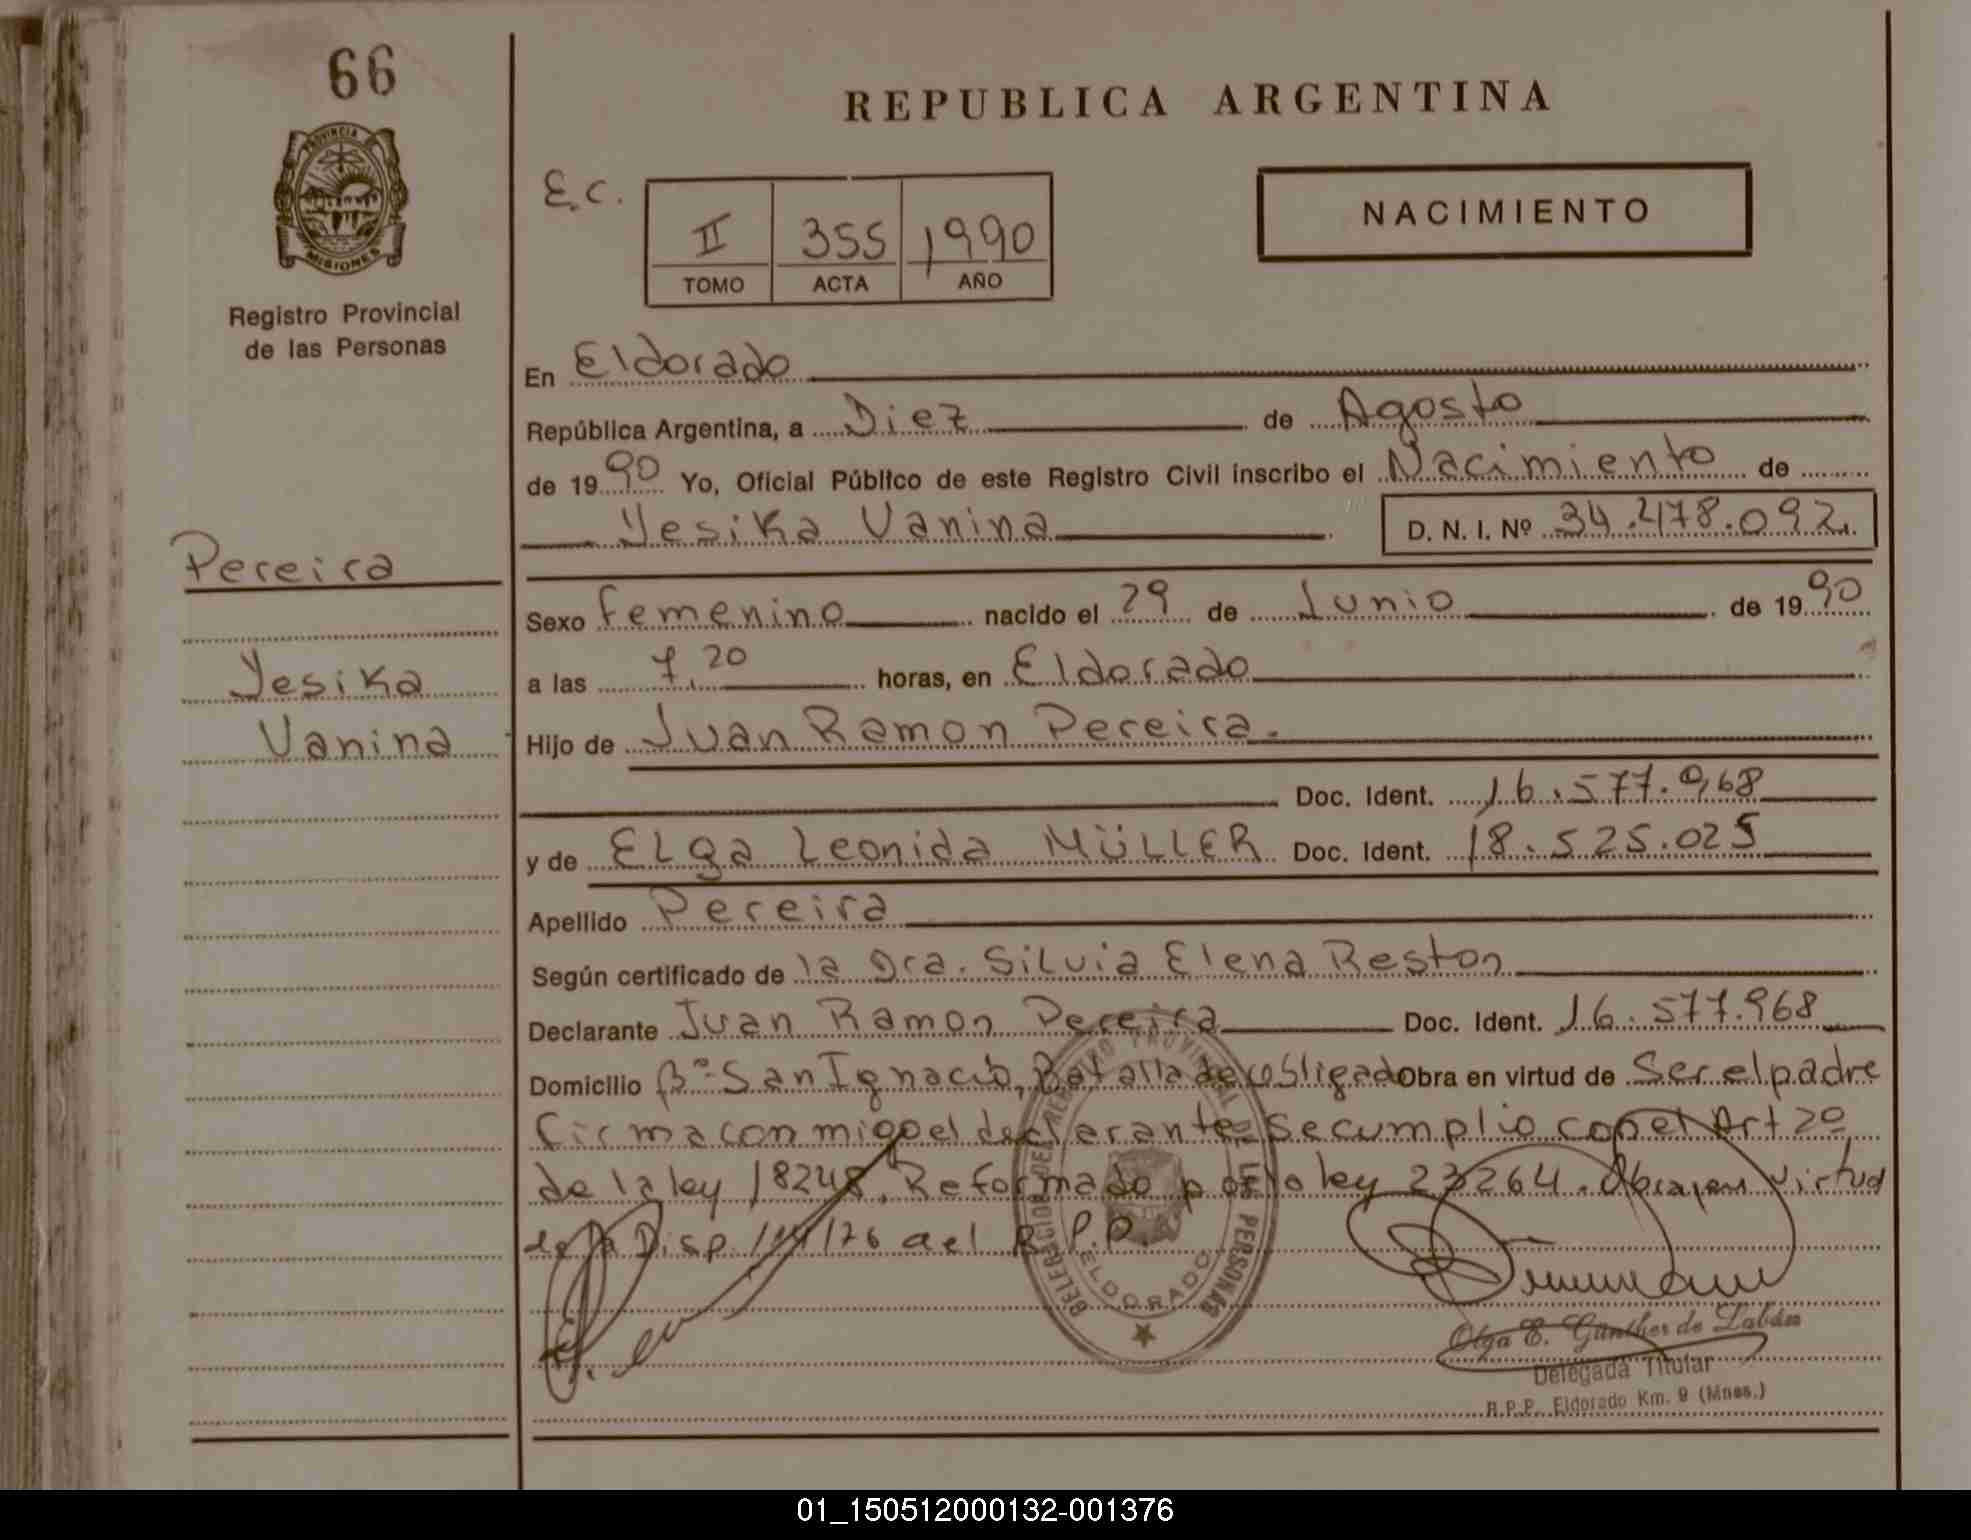 66
REPUBLICA ARGENTINA
PROVINCIA
MISIONES
Registro Provincial
de las Personas
E.C.
II 355 1990
TOMO ACTA AÑO
NACIMIENTO
En Eldorado
República Argentina, a Diez de Agosto
de 1990 Yo, Oficial Público de este Registro Civil inscribo el Nacimiento de
Yesika Vanina D. N. I. Nº 34.478.092.
Pereira
Yesika
Vanina
Sexo Femenino nacido el 29 de Junio de 1990
a las 7,20 horas, en Eldorado
Hijo de Juan Ramon Pereira.
Doc. Ident. 16.577.968
y de ELga Leonida MÜLLER Doc. Ident. 18.525.025
Apellido Pereira
Según certificado de la Dra. Silvia Elena Reston
Declarante Juan Ramon Pereira Doc. Ident. 16.577.968
Domicilio Bº San Ignacio, Batalla de obligado Obra en virtud de Ser el padre
firma con migo el declarante. Se cumplio con el Art 2º
de la ley 18248. Reformado por la ley 23264. Obra en virtud
de la Disp. 114/76 del R.P.P.
DELEGACION DEL REGISTRO PROVINCIAL DE LAS PERSONAS
ELDORADO
Olga E. Günther de Labán
Delegada Titular
R.P.P. Eldorado Km. 9 (Mnes.)
01_150512000132-001376